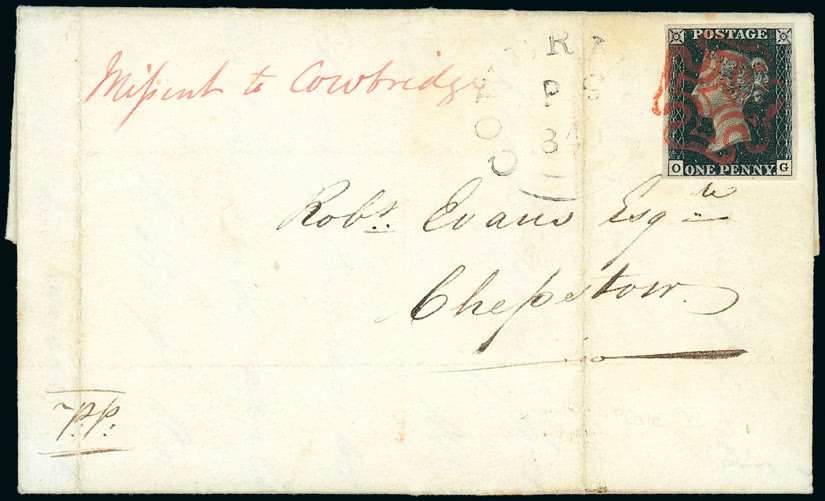 POSTAGE
O ONE PENNY. G
Missent to Cowbridge
Robt. Evans Esqre
Chepstow.
P.P.